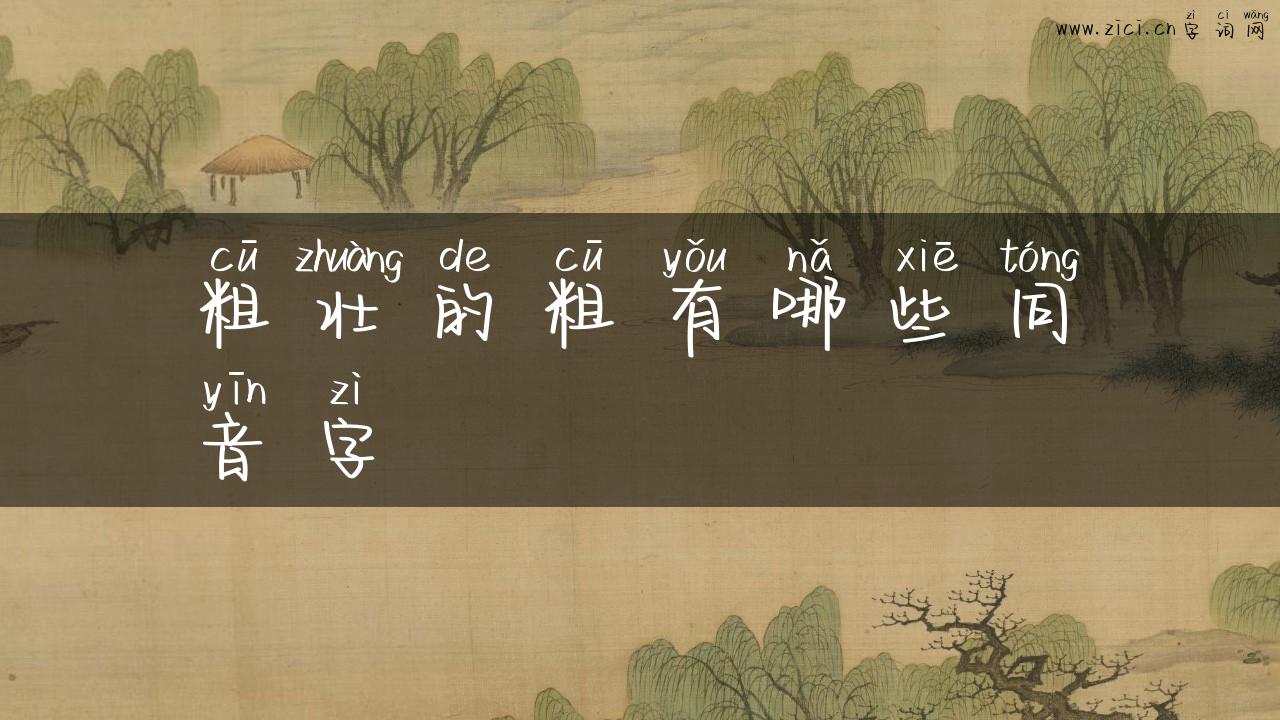 zì cí wǎng
www.zici.cn 字词网
cū zhuàng de cū yǒu nǎ xiē tóng
粗壮的粗有哪些同
yīn zì
音字